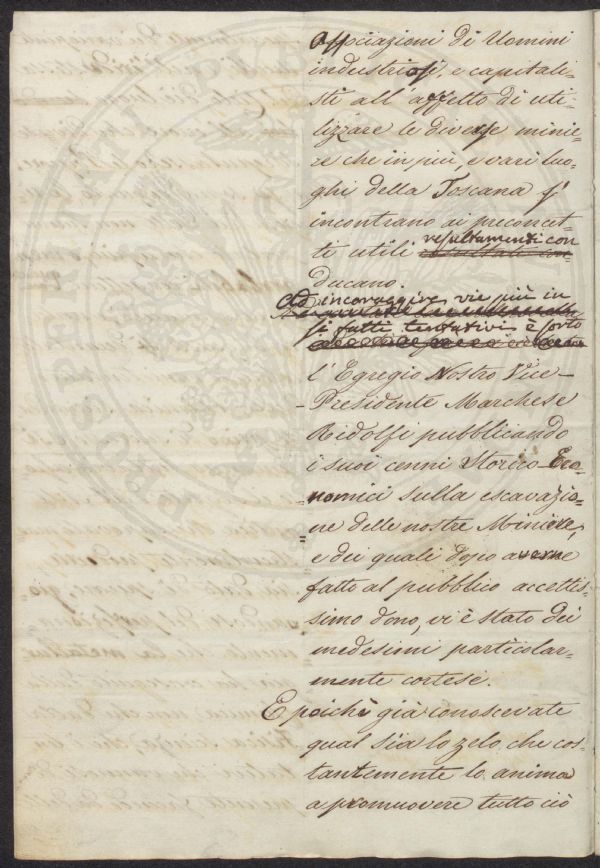 Associazioni di Uomini
industriosi, e capitali-
sti all'affetto di uti-
lizzare le diverse minie-
re che in più, e vari luo-
ghi della Toscana s'
incontrano ai preconcet-
ti utili resultamenti con
ducano.
Ad incoraggire vie più in
si fatti tentativi è sorto
l'Egregio Nostro Vice-
-Presidente Marchese
Ridolfi pubblicando
i suoi cenni Storico-Eco-
nomici sulla escavazio-
ne delle nostre Miniere,
e dei quali dopo averne
fatto al pubblico accettis-
simo dono, vi è stato dei
medesimi particolar-
mente cortese.
E poichè già conoscevate
qual sia lo zelo, che cos-
tantemente lo anima
a promuovere tutto ciò